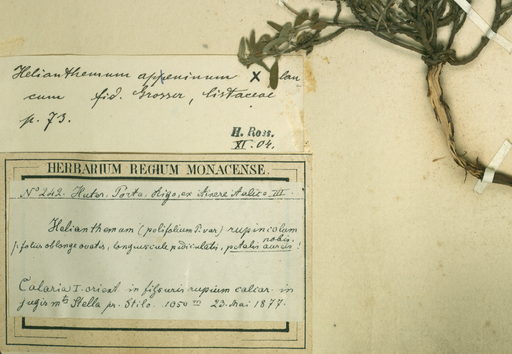 Helianthemum appeninum × lan
cum fid. Grosser, Cistaceae
p. 73.
H. Ross.
XI. 04.
HERBARIUM REGIUM MONACENSE.
N° 242. Huter, Porta, Rigo, ex itinere Italico III
Helianthemum (polifolium P. var) rupincolum
nobis.
foliis oblonge ovatis, longiuscule pediculatis, petalis aureis!
Calabria I. orient. in fissuris rupium calcar. in
jugis mtis Stella pr. Stilo. 1050 m 23. Mai 1877.